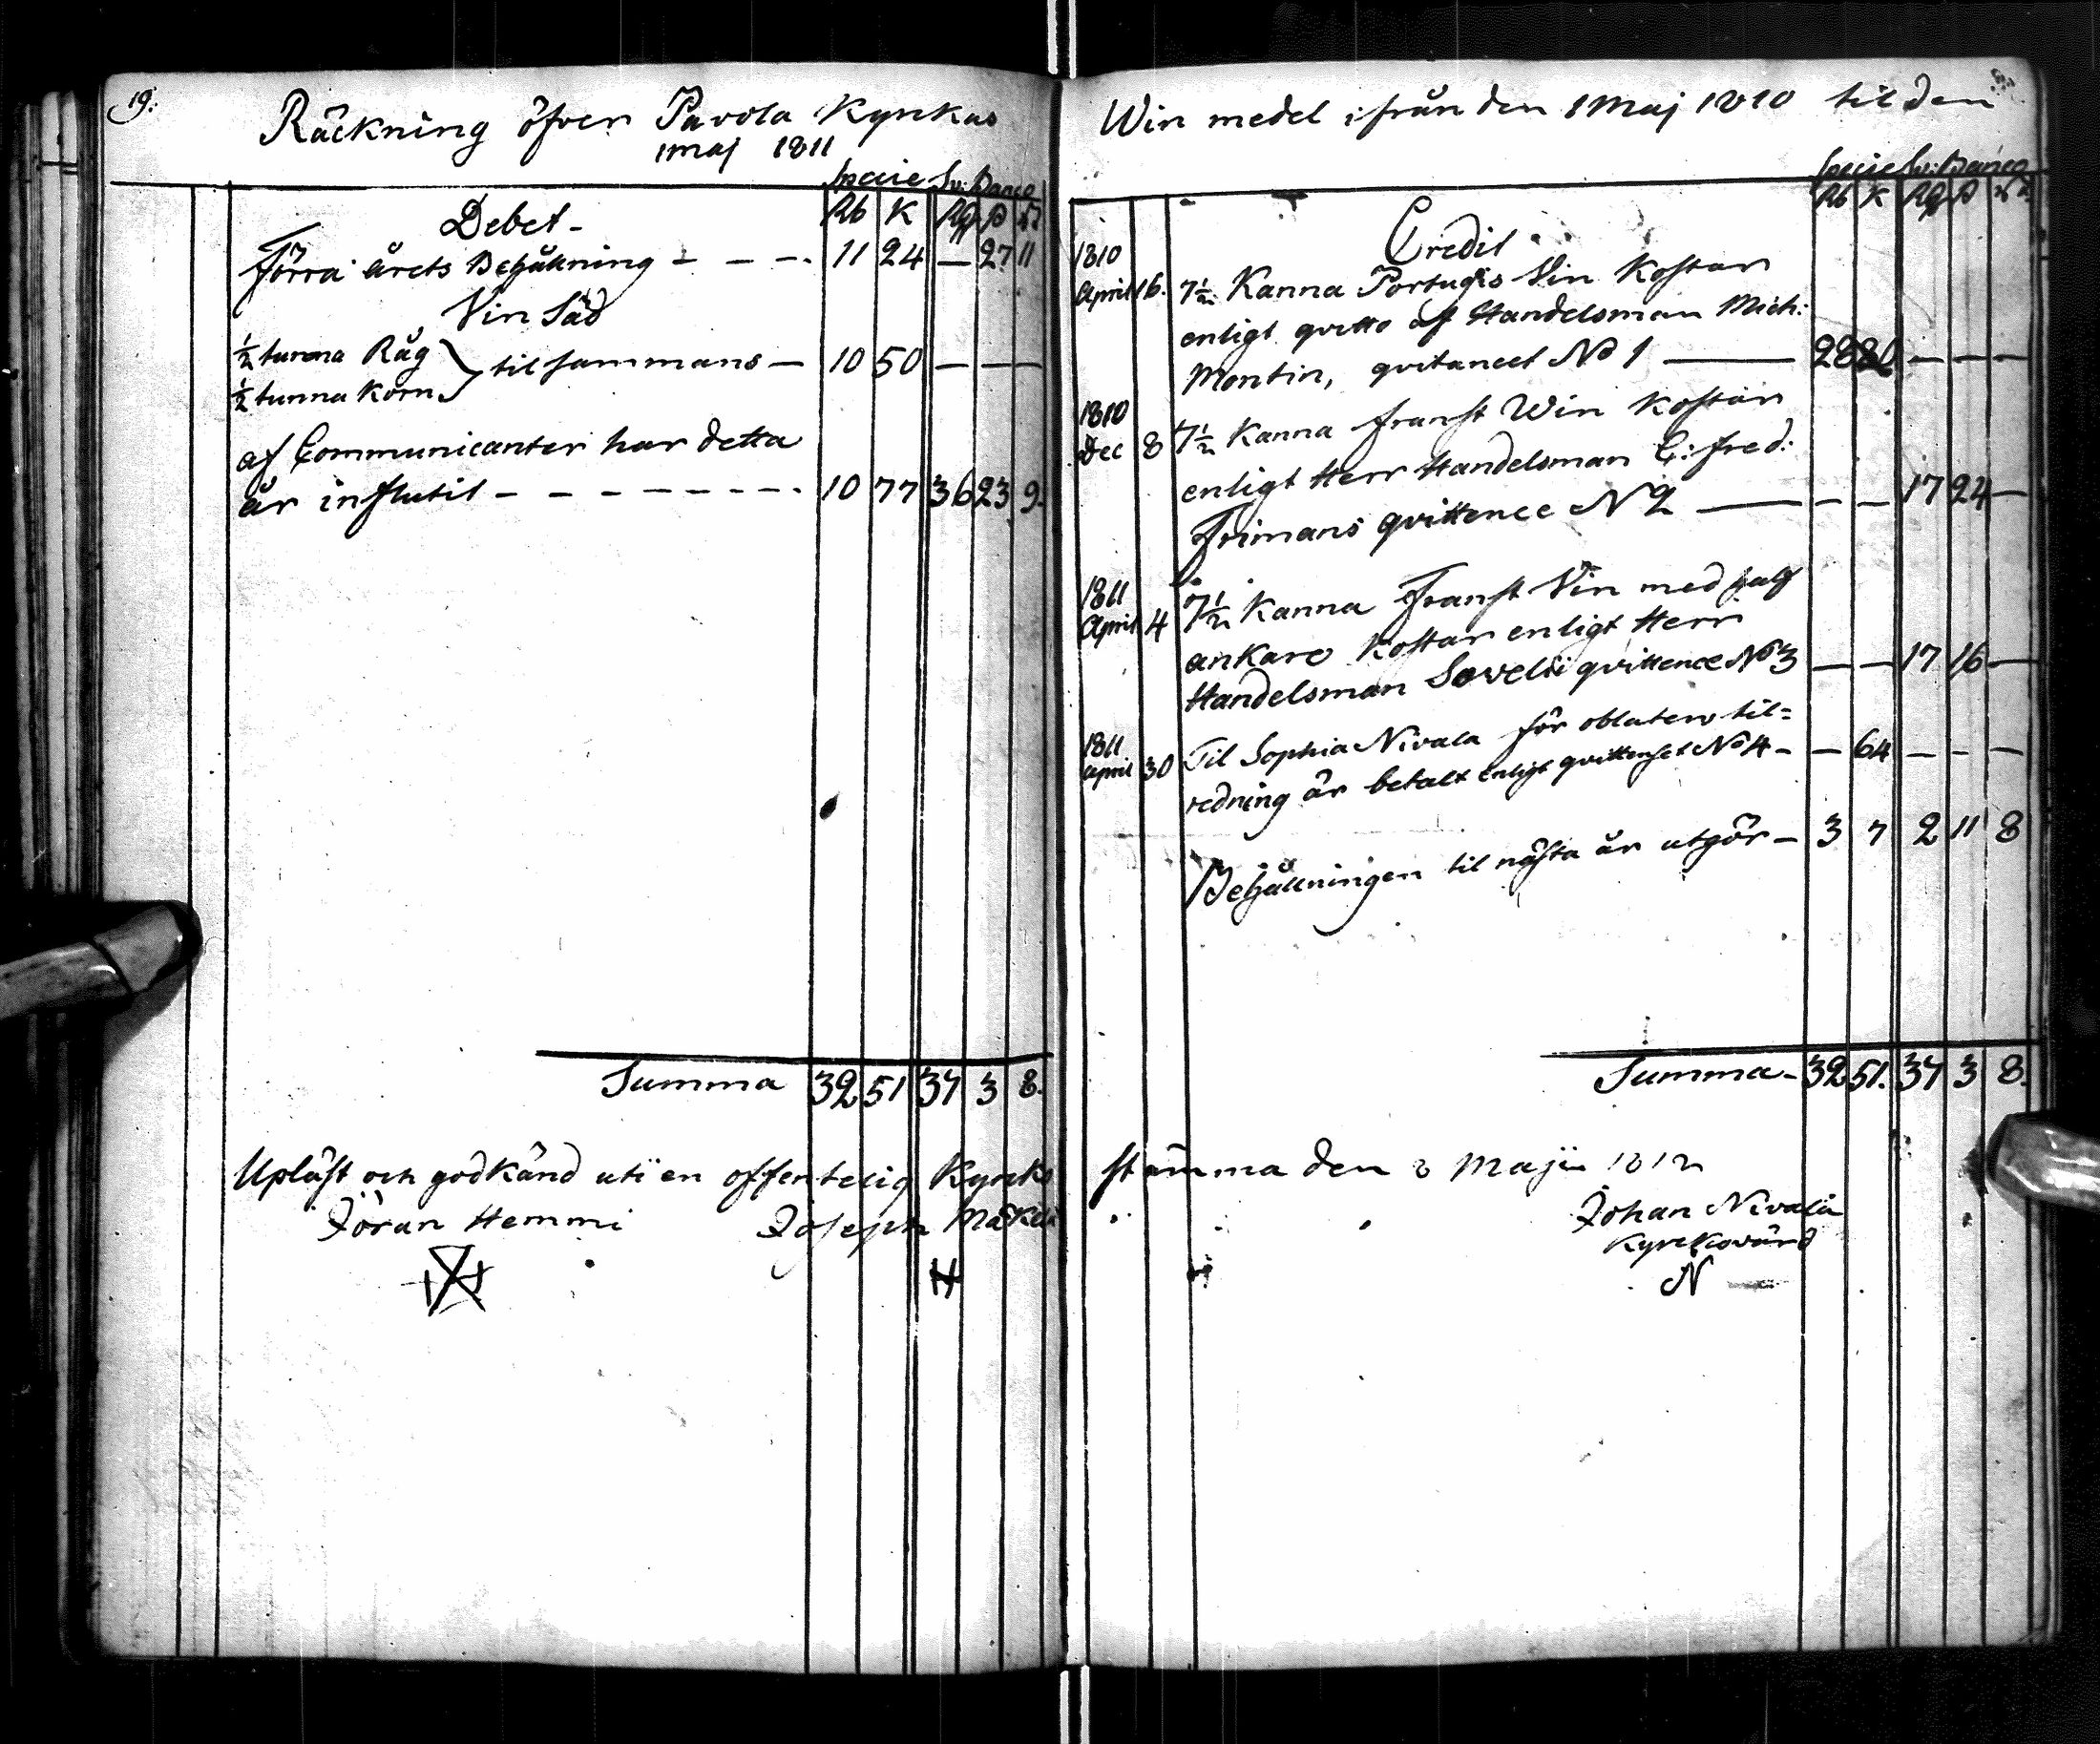 19.
Räckning öfver Pavola Kyrkas
1 Maj 1811
Specie Sv: Banco
Rb K Rd ß
Debet -
Förra årets Behållning - - - 11 24 — 27 11
Vin Säd
½ tunna Råg
½ tunna Korn } til sammans — 10 50 — — —
af Communicanter har detta
år influtit - - - - - - - - 10 77 36 23 9.
Summa 32 51 37 3 8.
Upläst och godkänd uti en offentelig Kyrko
Jöran Hemmi Joseph Mäkelä
Win medel ifrån den 1 Maj 1810 til den
Specie Sv: Banco
Rb K Rd ß
Credit
1810
April 16. 7½ Kanna Portugis Vin Kostar
enligt qvitto af Handelsman Mich:
Montin, qvitancet No 1 — 28 80 — — —
1810
Dec 8 7½ Kanna franst Win Kostar
enligt Herr Handelsman C: fred:
Frimans qvittence N 2 — — — 17 24 —
1811
April 4 7½ Kanna Franst Vin med half
ankare Kostar enligt Herr
Handelsman Sovelii qvittence No 3 — — 17 16 —
1811
April 30 Til Sophia Nivala för oblaters til=
redning är betalt enligt qvittenset No 4 - — 64 — — —
Behållningen til nästa år utgör — 3 7 2 11 8
Summa - 32 51. 37 3 8.
stämma den 3 Maji 1812
Johan Nivala
Kyrckovärd
N